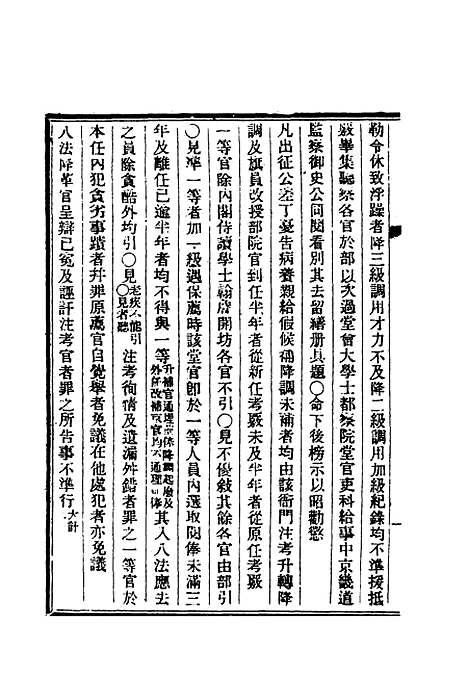 勒令休致浮躁者降三級調用才力不及降二級調用加級紀錄均不準援抵
嚴舉集聽察各官於部以次過堂會大學士都察院堂官吏科給事中京畿道
監察御史公同閱看別其去留繕册具題〇命下後榜示以昭勸懲
凡出征公差丁憂告病養親給假候補降調未補者均由該衙門注考升轉降
調及旗員改授部院官到任半年者從新任考覈未及半年者從原任考覈
一等官除內閣侍讀學士翰詹開坊各官不引〇見不優敍其餘各官由部引
〇見準一等者加一級遇保薦時該堂官卽於一等人員內選取閱俸未滿三
年及離任已逾半年者均不得與一等升補官通理前俸降調起廢及外任改補京官均不通理前俸其入八法應去
之員除貪酷外均引〇見老疾不能引〇見者聽注考徇情及遺漏舛錯者罪之一等官於
本任內犯貪劣事蹟者幷罪原薦官自覺舉者免議在他處犯者亦免議
八法降革官呈辯已冤及誣訐注考官者罪之所告事不準行大計